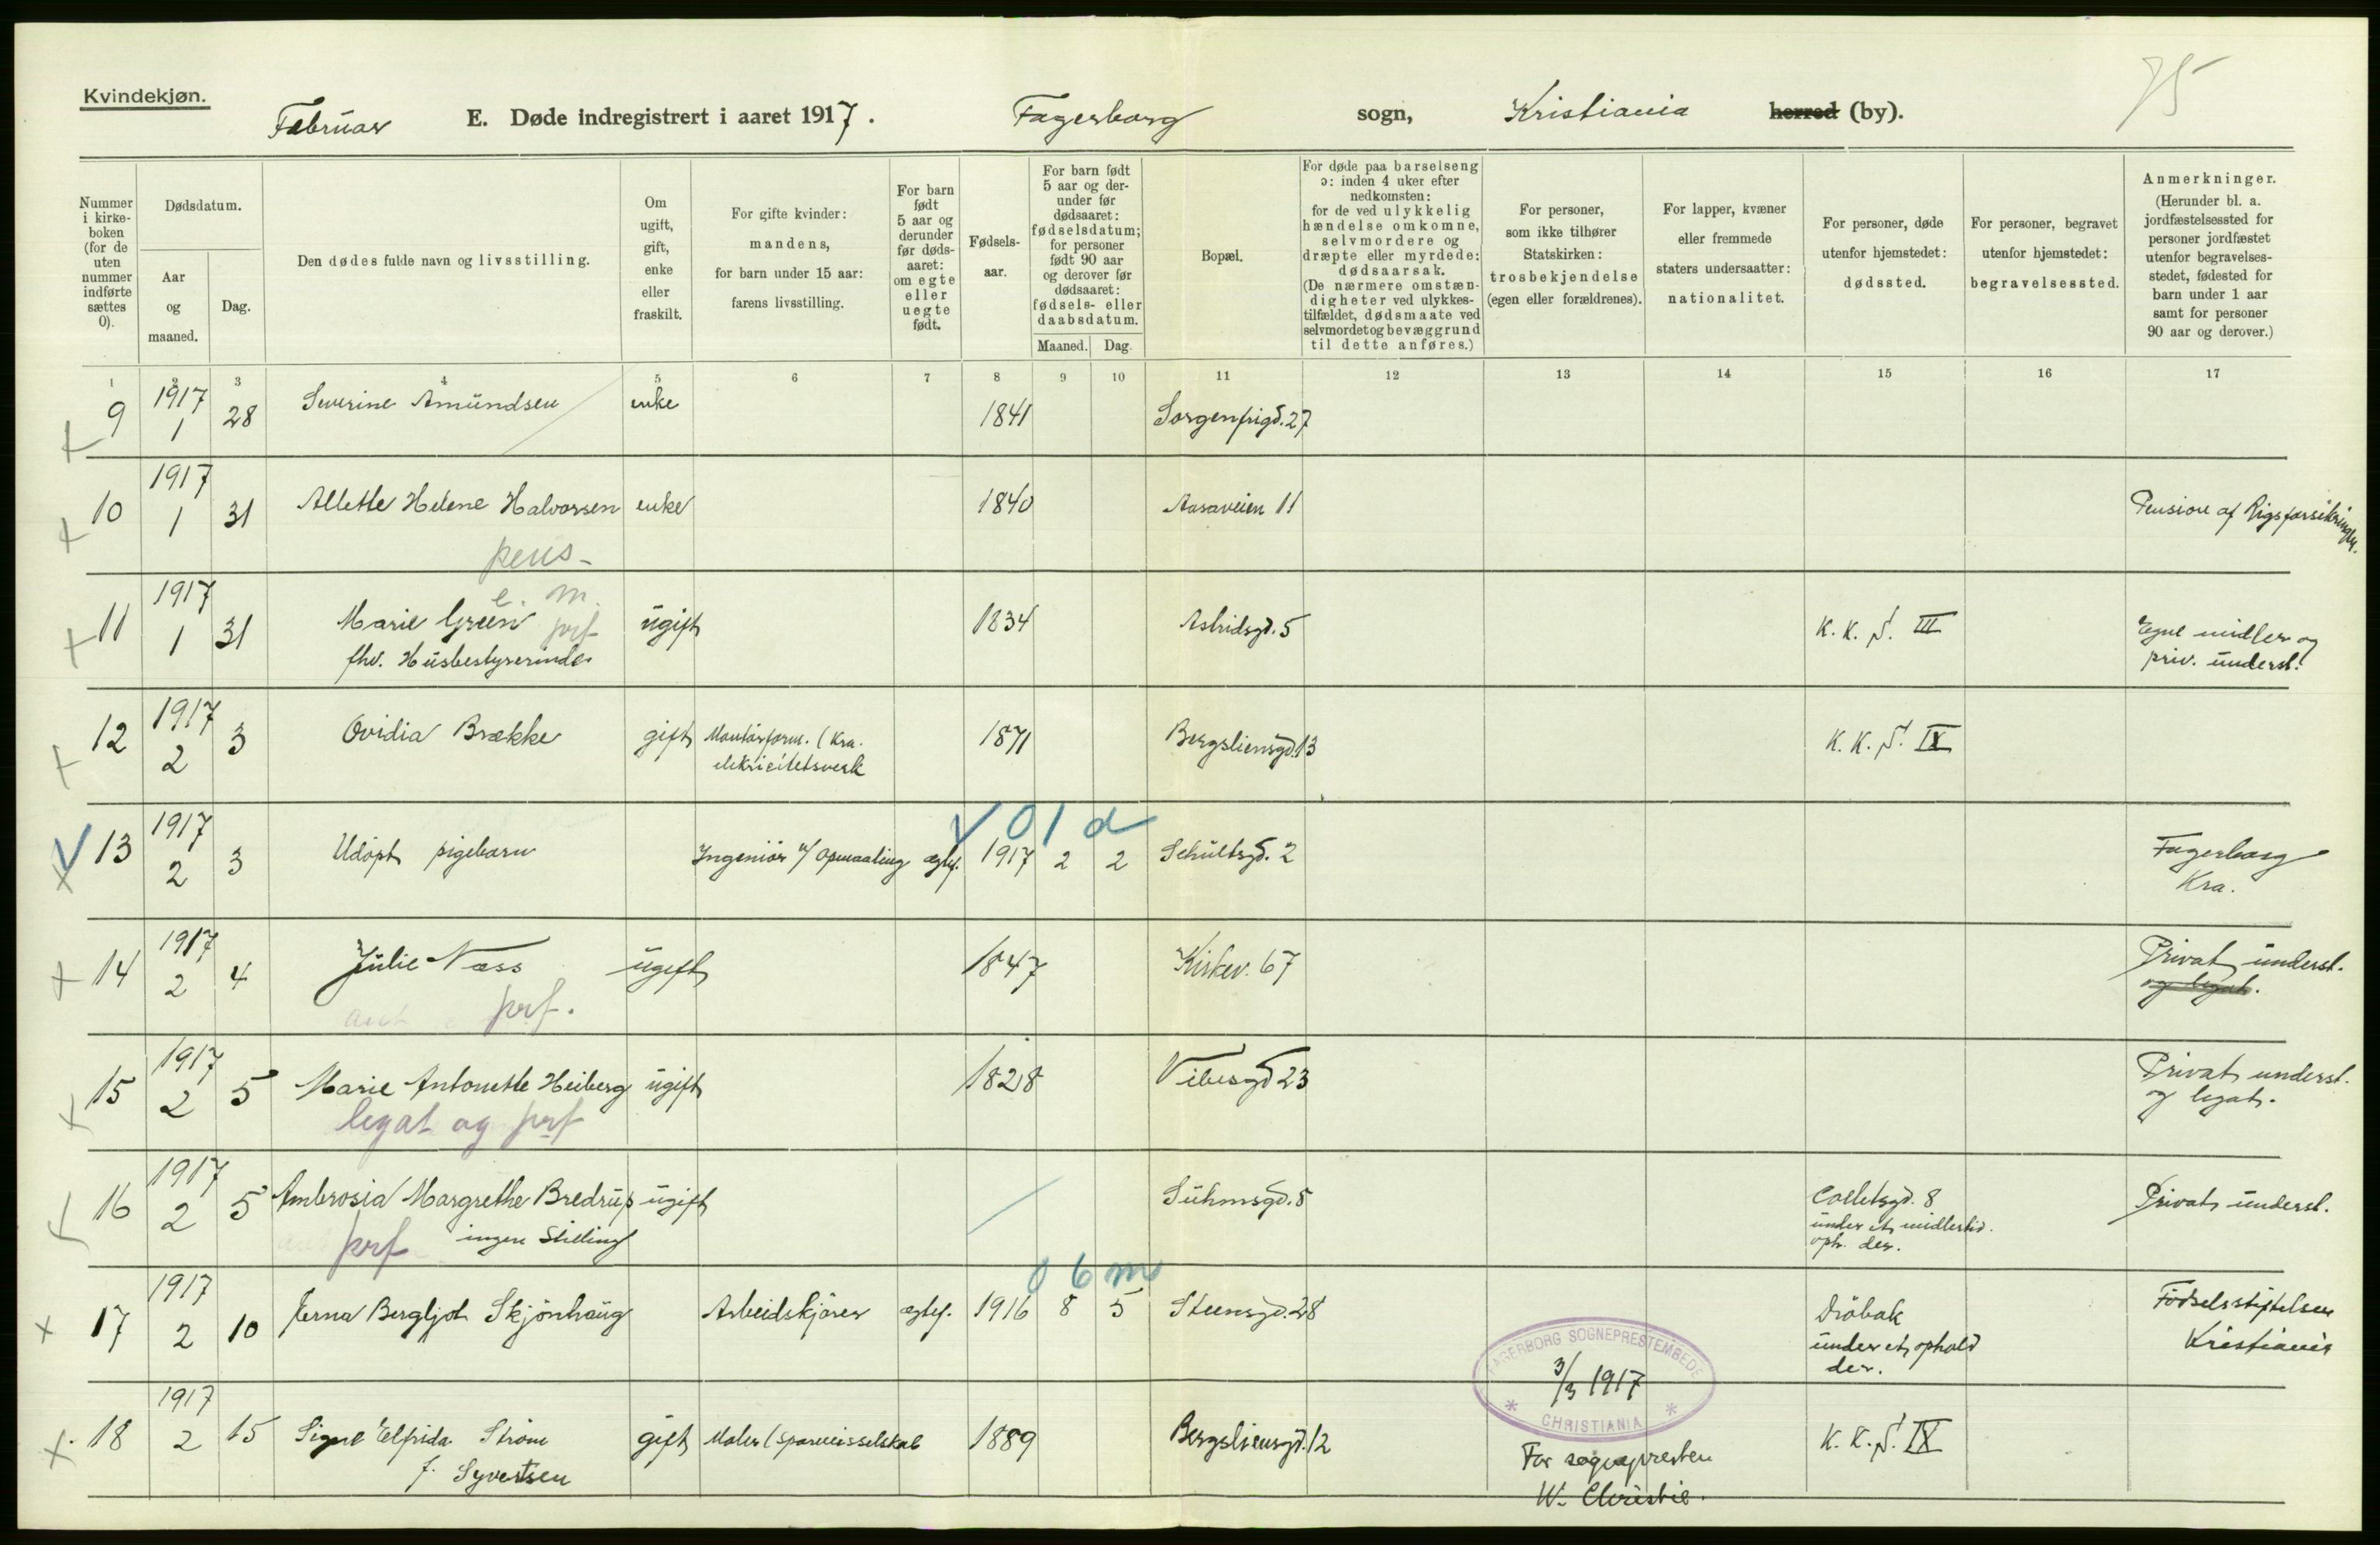 Kvindekjøn.
75
Februar E. Døde indregistrert i aaret 1917. Fagerborg sogn, Kristiania herred (by).
Nummer i kirke-boken (for de uten nummer indførte sættes 0).
Dødsdatum.
Aar og maaned.
Dag.
Den dødes fulde navn og livsstilling.
Om ugift, gift, enke eller fraskilt.
For gifte kvinder: mandens, for barn under 15 aar: farens livsstilling.
For barn født 5 aar og derunder før døds-aaret: om egte eller uegte født.
Fødsels-aar.
For barn født 5 aar og der-under før dødsaaret: fødselsdatum; for personer født 90 aar og derover før dødsaaret: fødsels- eller daabsdatum.
Maaned. Dag.
Bopæl.
For døde paa barselseng ɔ: inden 4 uker efter nedkomsten: for de ved ulykkelig hændelse omkomne, selvmordere og dræpte eller myrdede: dødsaarsak. (De nærmere omstæn-digheter ved ulykkes-tilfældet, dødsmaate ved selvmord og bevæggrund til dette anføres.)
For personer, som ikke tilhører Statskirken: trosbekjendelse (egen eller forældrenes).
For lapper, kvæner eller fremmede staters undersaatter: nationalitet.
For personer, døde utenfor hjemstedet: dødssted.
For personer, begravet utenfor hjemstedet: begravelsessted.
Anmerkninger. (Herunder bl. a. jordfæstelsessted for personer jordfæstet utenfor begravelses-stedet, fødested for barn under 1 aar samt for personer 90 aar og derover.)
1 2 3 4 5 6 7 8 9 10 11 12 13 14 15 16 17
9 1917 1 28 Severine Amundsen enke 1841 Sorgenfrigd. 27
10 1917 1 31 Allette Helene Halvorsen enke 1840 Aasaveien 11 Pension af Rigsforsikringen.
pens-
e. m.
11 1917 1 31 Marie Green prf ugift 1834 Astridsgd. 5 K. K. S. III Egne midler og
fhv. Husbestyrerinde priv. underst.
12 1917 2 3 Ovidia Brække gift Montørform. (Kra. 1871 Bergsliensgd. 13 K. K. S. IX
elektricitetsverk
V 0 1 d
13 1917 2 3 Udøpt pigebarn Ingeniør v/ Opmaaling egtef. 1917 2 2 Schultsgd. 2 Fagerborg
Kra.
14 1917 2 4 Julie Næss ugift 1847 Kirkev. 67 Privat underst.
prf. og legat.
15 1917 2 5 Marie Antonette Heiberg ugift 1828 Vibesgd 23 Privat underst.
legat og prf og legat.
16 1917 2 5 Ambrosia Margrethe Bredrup ugift Suhmsgd. 5 Colletsgd. 8 Privat underst.
prf ingen Stilling under et midlertid.
oph. der.
0 6 m
17 1917 2 10 Jerna Bergljot Skjönhaug Arbeidskjører egtef. 1916 8 5 Steensgd. 28 Dröbak Födselsstiftelsen
under et ophold Kristiania
der.
FAGERBORG SOGNEPRESTEMBEDE
3/3 1917
* CHRISTIANIA *
18 1917 2 15 Signe Elfrida Ström gift Maler (Sporveisselskab 1889 Bergsliensgd. 12 K. K. S. IX
f. Syvertsen For sognepresten
W. Christie.